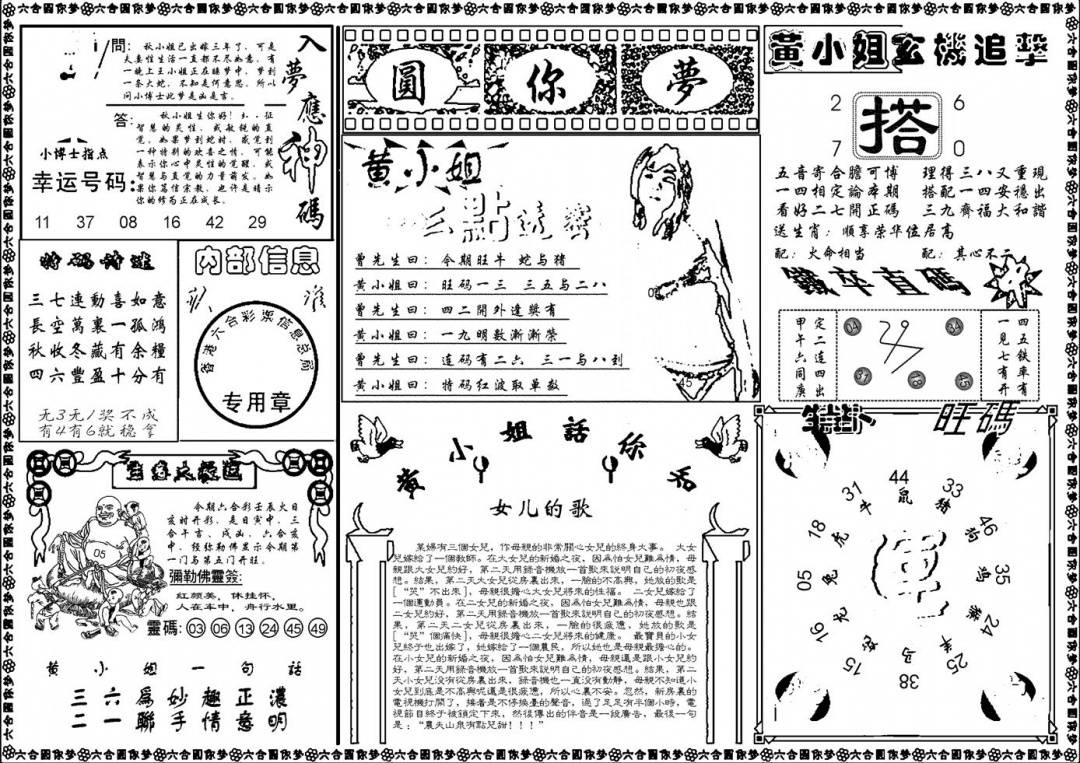 入夢應神碼
問: 秋小姐已出嫁三年了, 可是
夫妻性生活一直都不尽如意, 有
一晚上王小姐正在睡梦中, 梦到
一条大蛇, 不知是何意思, 所以
问小博士此梦是凶是吉。
答: 秋小姐生你好!
智慧的灵性, 或敏锐的直
觉, 如果梦到蛇时, 感觉到
一种特别的欢喜之情, 可能
表示你心中灵性的觉醒, 或
智慧与直觉的力量萌发, 如
果你笃信宗教, 也许是暗示
你的修为正在成长。
小博士指点
幸运号码:
11 37 08 16 42 29
特码诗迷
三七連動喜如意
長空萬裏一孤鴻
秋收冬藏有余糧
四六豐盈十分有
无3无1奖不成
有4有6就稳拿
内部信息
香港六合彩票信息总局
专用章
今期六合彩壬辰火日
亥时开彩, 是日寅中, 三
合午吉, 戌凶, 六合亥
中, 经弥勒佛显示今期第
一门与第五门开旺。
彌勒佛靈簽:
红颜美, 休挂怀,
人在车中, 舟行水里。
05
靈碼: 03 06 13 24 45 49
黄小姐一句話
三六爲妙趣正濃
二一聯手情意明
圓你夢
黄小姐
點
曾先生曰: 今期旺牛 蛇与猪
黄小姐曰: 旺码一三 三五与二八
曾先生曰: 四二開外逢獎有
黄小姐曰: 一九明數漸漸榮
曾先生曰: 连码有二六 三一与八到
黄小姐曰: 特码红波取单数
45
黄小姐話你知
女儿的歌
某婦有三個女兒, 作母親的非常關心女兒的終身大事。 大女
兒嫁給了一個教師, 在大女兒的新婚之夜, 因爲怕女兒難爲情, 母
親跟大女兒約好, 第二天用錄音機放一首歌來説明自己的初夜感
想。結果, 第二天大女兒從房裏出來, 一臉的不高興, 她放的歌是
[“哭”不出來], 母親很擔心大女兒將來的性福。 二女兒嫁給了
一個運動員。在二女兒的新婚之夜, 因爲怕女兒難爲情, 母親也跟
二女兒約好, 第二天用錄音機放一首歌來説明自己的初夜感想。結
果, 第二天二女兒從房裏出來, 一臉的很疲憊, 她放的歌是
[“哭”個痛快], 母親很擔心二女兒將來的健康。 最寶貝的小女
兒終于也出嫁了, 她嫁給了一個農民, 所以她也是母親最擔心的。
在小女兒的新婚之夜, 因爲怕女兒難爲情, 母親還是跟小女兒約
好, 第二天用錄音機放一首歌來説明自己的初夜感想。結果, 第二
天小女兒没有從房裏出來, 錄音機也一直没有動靜, 母親不知道小
女兒到底是不高興呢還是很疲憊, 所以心裏不安。忽然, 新房裏的
電視機打開了, 接着是不停换臺的聲音, 過了足足有半個小時, 電
視節目終于被鎖定下來, 然後傳出的伴音是一段廣告, 最後一句
是: “農夫山泉有點兒甜!!!”
黃小姐玄機追擊
2 6
搭
7 0
五音寄合膽可博 理得三八又重現
一四相定論本期 搭配一四安穩出
看好二七開正碼 三九齊福大和諧
送生肖: 順享荣华位居高
配: 火命相当 配: 其心不二
鐵卒直碼
甲午六同庚
定二连四出
一見七有开
四五铁車有
旺碼
44 鼠
33
46
35 鸡
24
25 羊
38 马
75 蛇
76 龙
05 兔
18 虎
31 牛
六合圓你夢